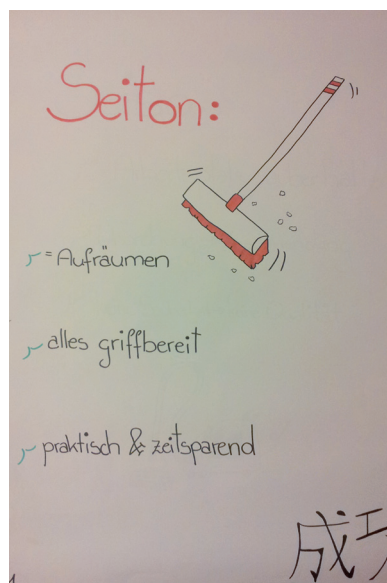 Seiton:
= Aufräumen
alles griffbereit
praktisch & zeitsparend
成功